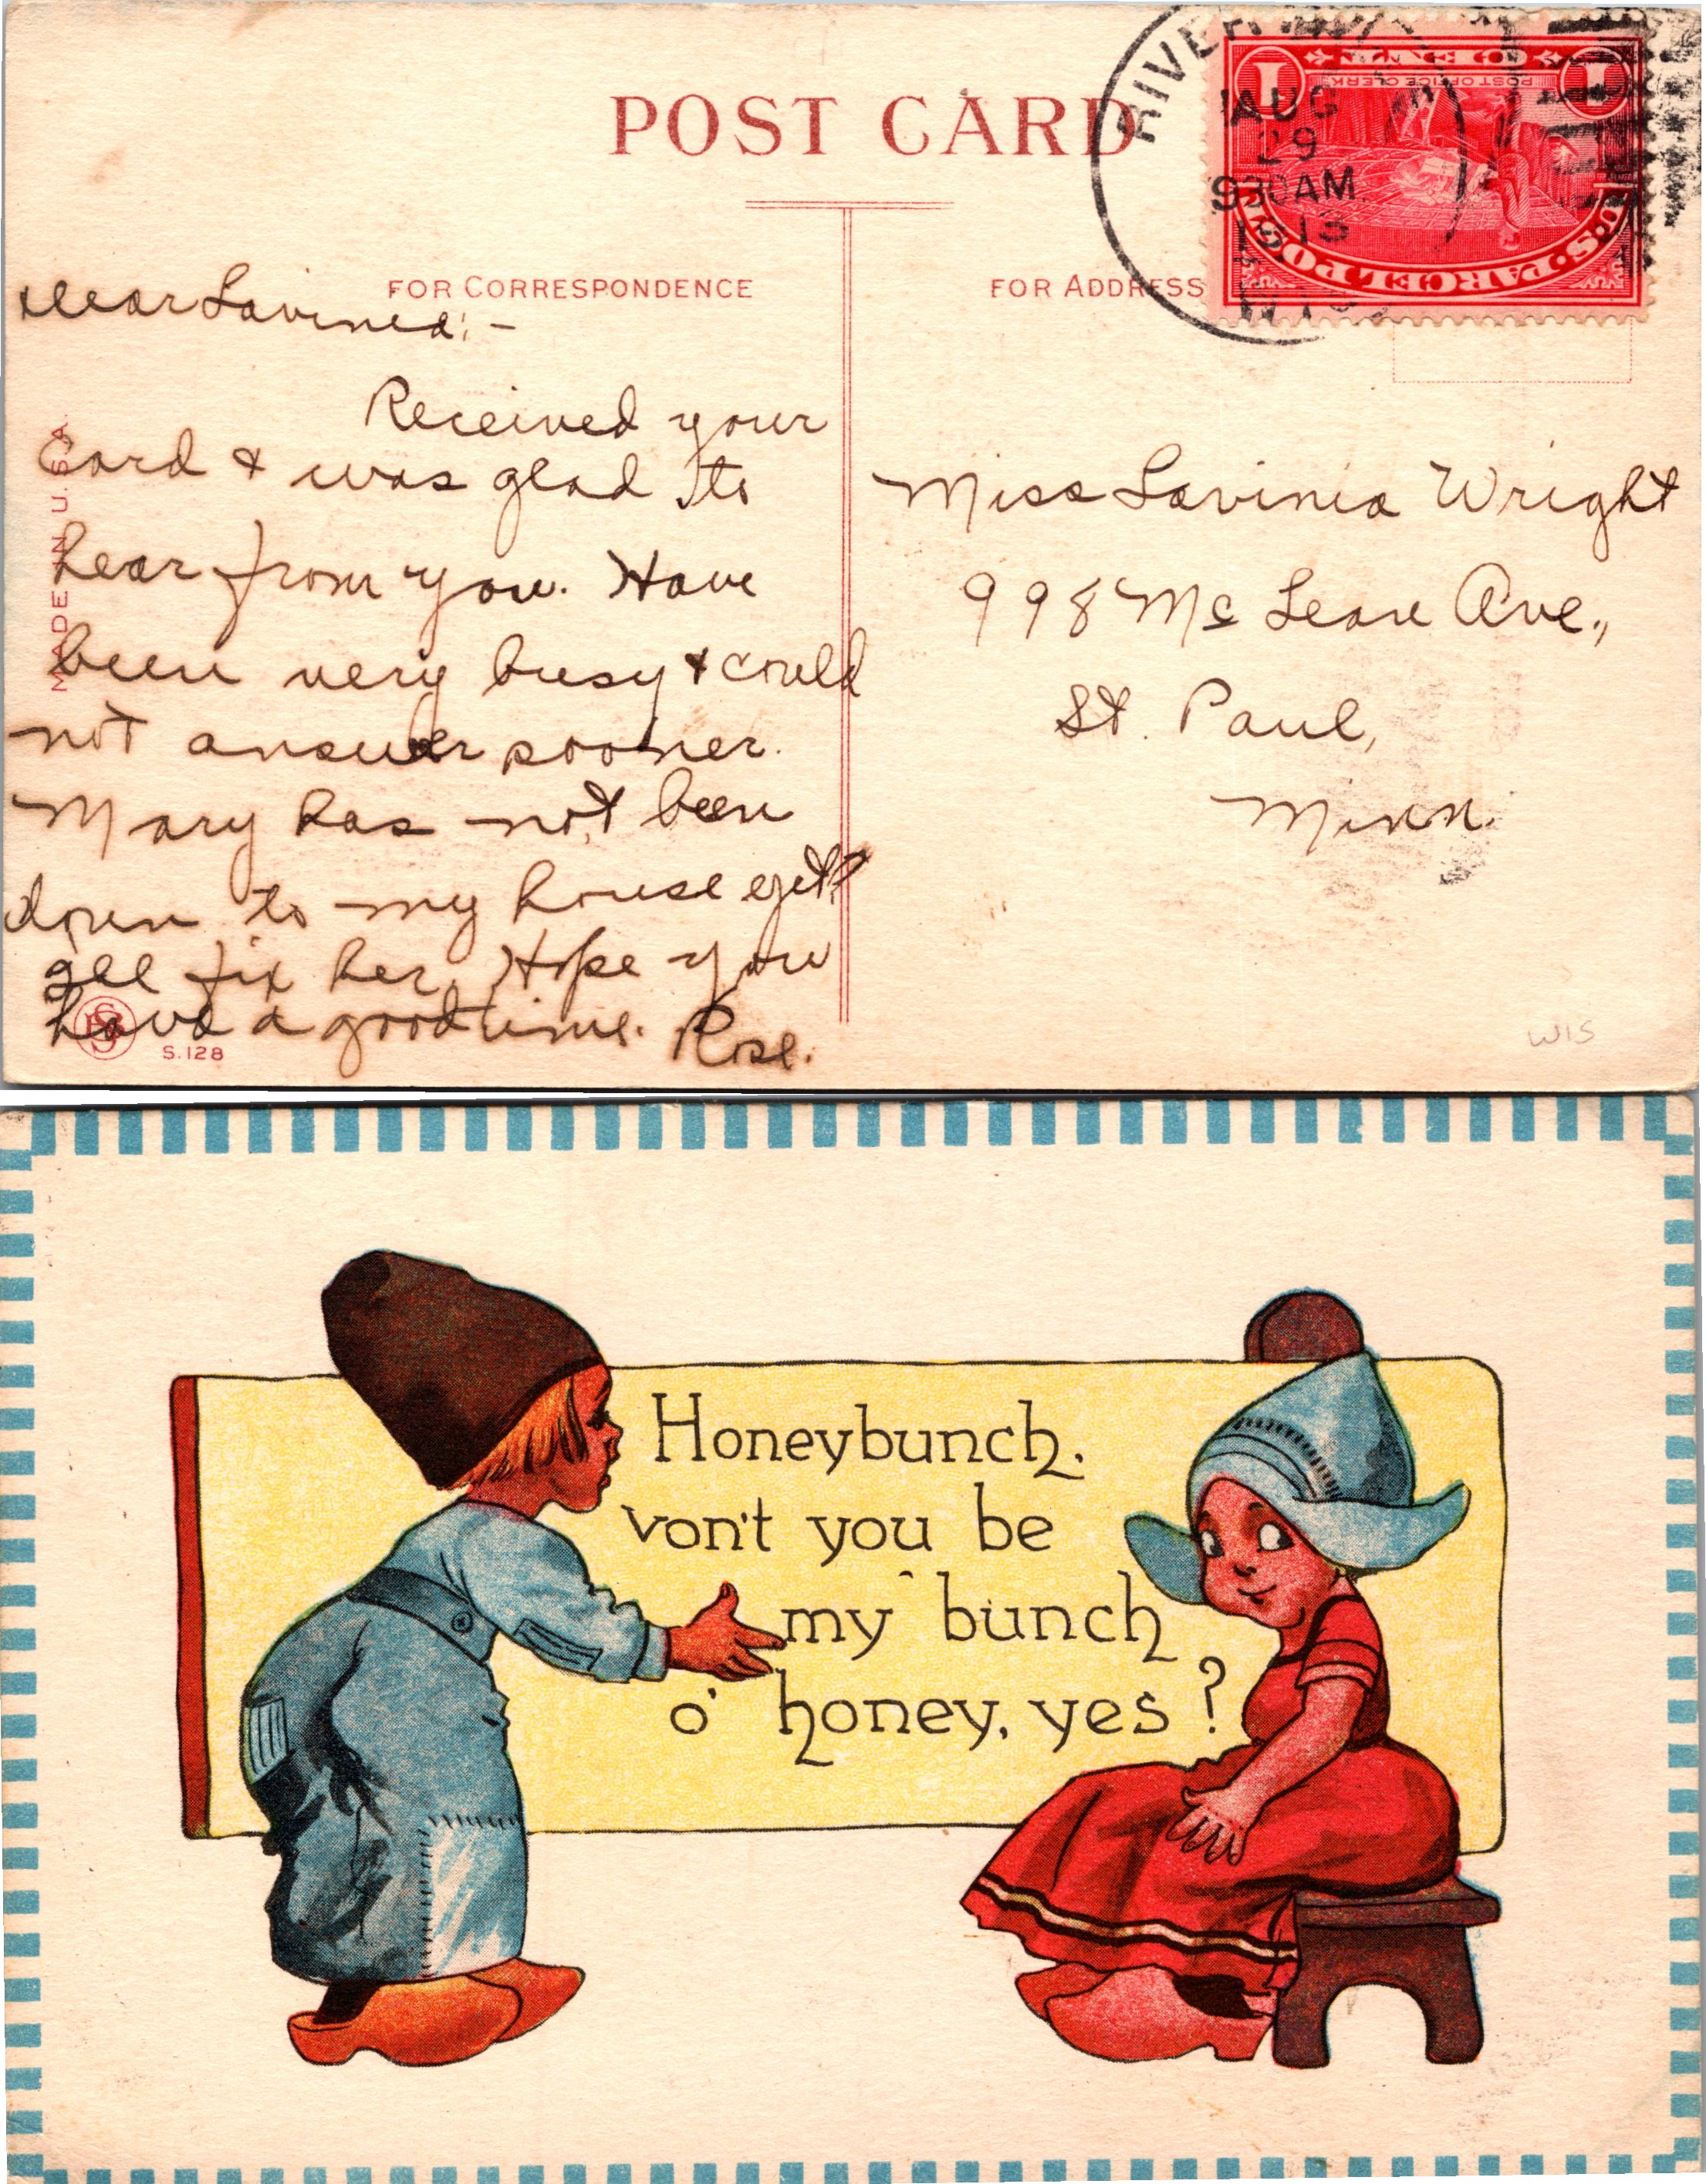 POST CARD
FOR CORRESPONDENCE
FOR ADDRESS
RIVER
AUG
29
930AM.
1913
WIS
1 ONE 1
POST OFFICE CLERK
U.S. PARCEL POST
MADE IN U.S.A.
Dear Lavinia:-
Received your
card & was glad to
hear from you. Have
been very busy & could
not answer sooner.
Mary has not been
down to my house yet?
Ill fix her. Hope you
have a good time. Rose.
S.128
Miss Lavinia Wright
998 Mc Lean Ave.,
St. Paul,
Minn.
WIS
Honeybunch,
von't you be
my bunch
o' honey, yes?